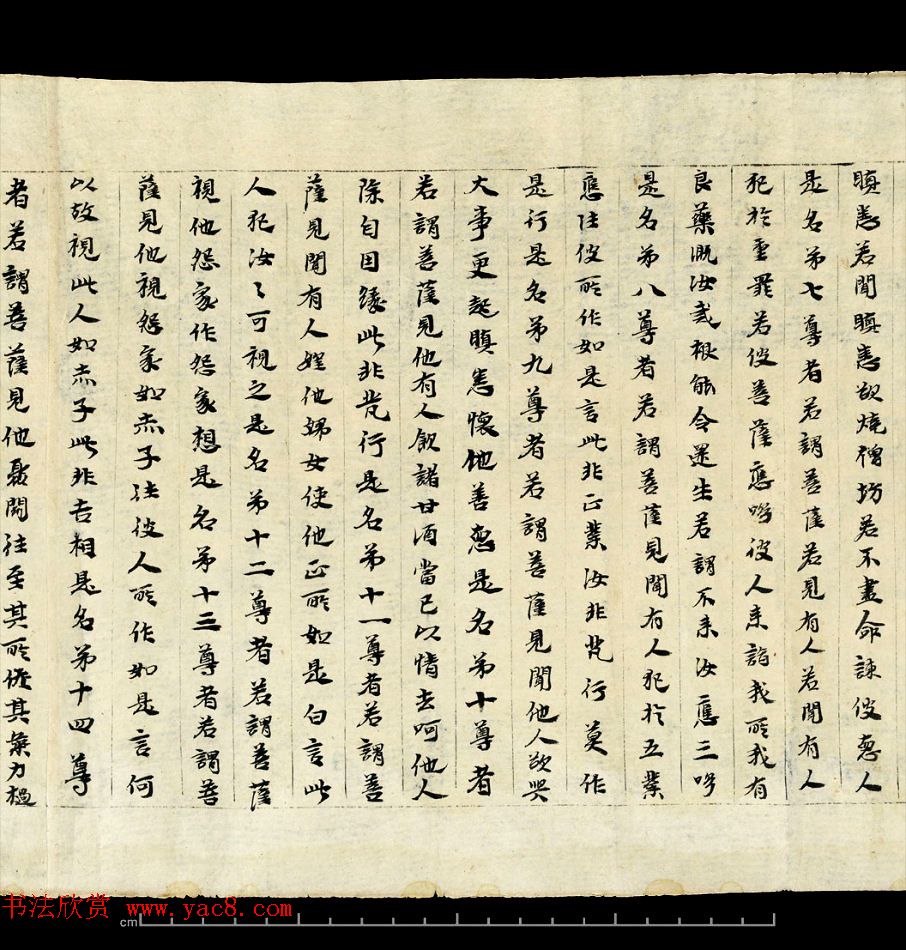 瞋恚若聞瞋恚欲燒僧坊若不盡命諫彼惡人
是名第七尊者若謂菩薩若見有人若聞有人
犯於重罪若彼菩薩應呼彼人來詣我所我有
良藥溉汝戒根能令還生若謂不來汝應三呼
是名第八尊者若謂菩薩見聞有人犯於五業
應往彼所作如是言此非正業汝非梵行莫作
是行是名第九尊者若謂菩薩見聞他人欲興
大事更起瞋恚懷他善惡是名第十尊者
若謂菩薩見他有人飲諸甘酒當已以情去呵他人
除自因緣此非梵行是名第十一尊者若謂善
薩見聞有人婬他婦女使他正所如是白言此
人犯汝〻可視之是名第十二尊者若謂菩薩
視他怨家作怨家想是名第十三尊者若謂菩
薩見他視怨家如赤子往彼人所作如是言何
以故視此人如赤子此非吉相是名第十四尊
者若謂菩薩見他鬪往至其所佐其氣力檛
书法欣赏 www.yac8.com
cm